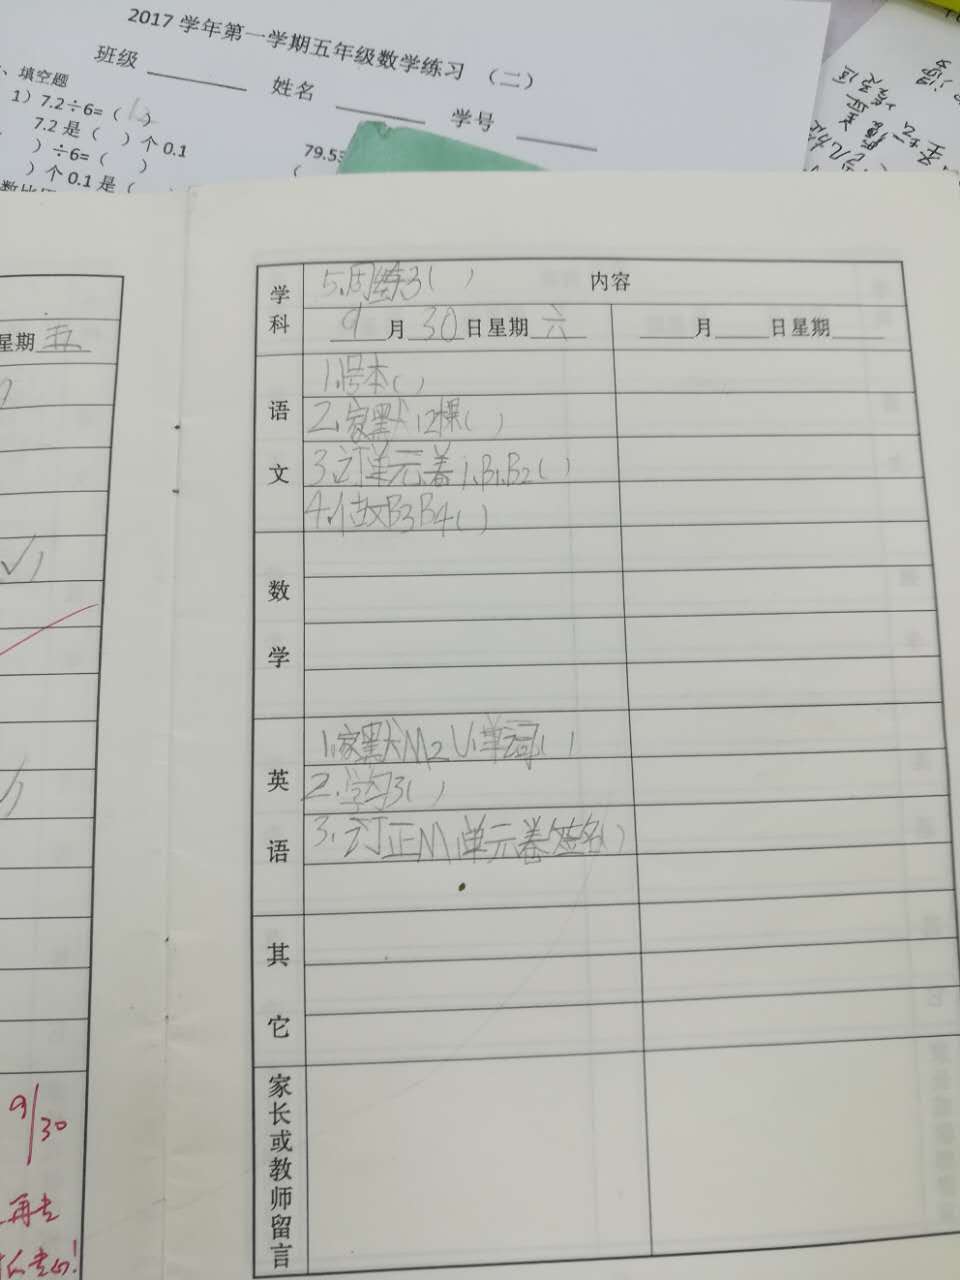 2017 学年第一学期五年级数学练习 （二）
班级 姓名 学号
、填空题
1）7.2÷6=（1.2）
7.2 是（ ）个 0.1
79.53
）÷6=（ ）
）个 0.1 是（
学科
5.周练3( )
内容
9月30日星期六
月 日星期
星期五
语文
1.号本( )
2.家默12课( )
3.订单元卷1,B1,B2( )
4.做B3B4( )
数学
英语
1.家默M2U1单词( )
2.学习3( )
3.订正M1单元卷(签名)
其它
家长或教师留言
9/30
再去